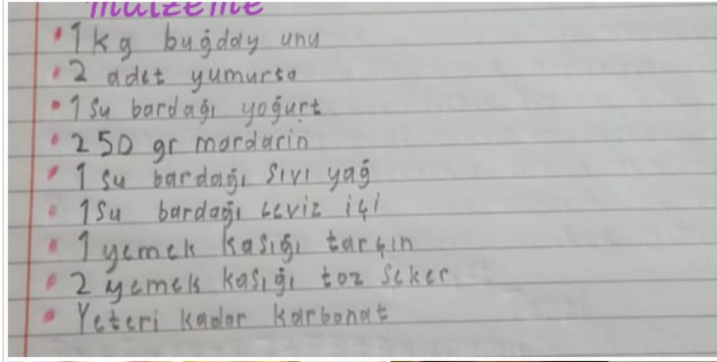 malzeme
1 kg buğday unu
2 adet yumurta
1 su bardağı yoğurt
250 gr mardarin
1 su bardağı sıvı yağ
1 su bardağı ceviz içi
1 yemek kaşığı tarçın
2 yemek kaşığı toz şeker
Yeteri kadar karbonat